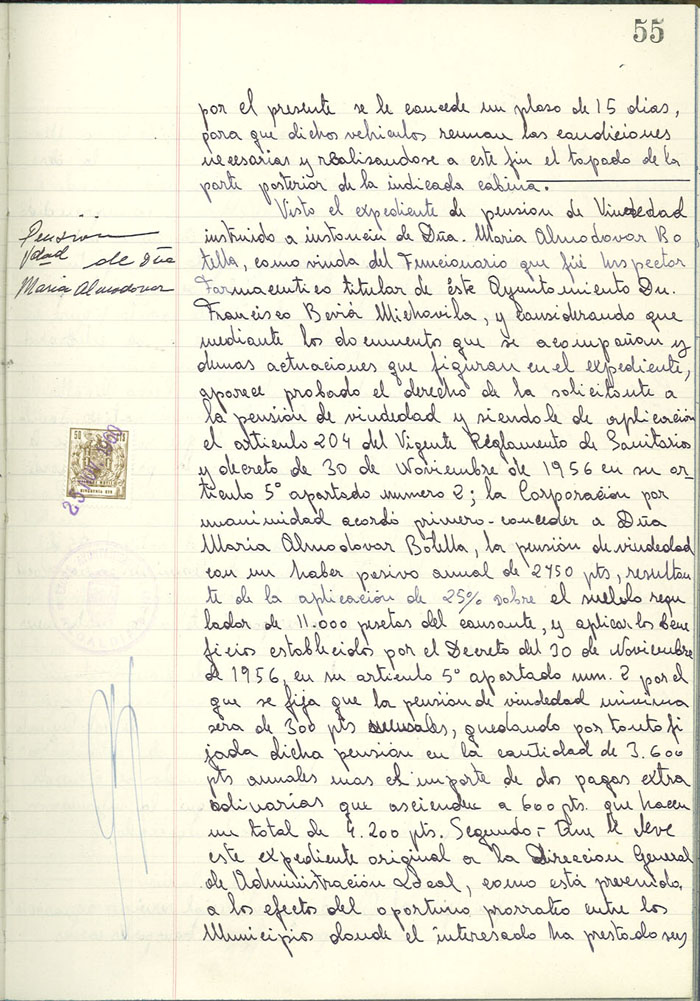 55
por el presente se le concede un plazo de 15 dias,
para que dichos vehiculos reunan las condiciones
necesarias y realisandose a este fin el tapado de la
parte posterior de la indicada cabina.
Pensión
Vdad de Dña
Maria Almodovar
Visto el expediente de pension de Viudedad
instruido a instancia de Dña. Maria Almodovar Bo
tella, como viuda del Funcionario que fué Inspector
Farmaceutico titular de este Ayuntamiento Dn.
Francisco Beviá Michavila, y considerando que
mediante los documentos que se acompañan y
demas actuaciones que figuran en el expediente,
aparece probado el derecho de la solicitante a
la pensión de viudedad y siendole de aplicación
el articulo 204 del Vigente Reglamento de Sanitarios
y decreto de 30 de Noviembre de 1956 en su ar-
ticulo 5º apartado numero 2; la Corporación por
unanimidad acordó primero- conceder a Dña
Maria Almodovar Botella, la pensión de viudedad
con un haber pasivo anual de 2750 pts, resultan
te de la aplicación de 25% sobre el sueldo regu
lador de 11.000 pesetas del causante, y aplicar los bene
ficios establecidos por el Decreto del 30 de Noviembre
de 1956, en su articulo 5º apartado num. 2 por el
que se fija que la pensión de viudedad minima
sera de 300 pts mensuales, quedando por tanto fi
jada dicha pensión en la cantidad de 3.600
pts anuales mas el importe de dos pagas extra
odinarias que asciende a 600 pts. que hacen
un total de 4.200 pts. Segundo.- Que se lleve
este expediente original a la Dirección General
de Administración Local, como está prevenido,
a los efectos del oportuno prorrateo entre los
Municipios donde el interesado ha prestado sus
50 PTS